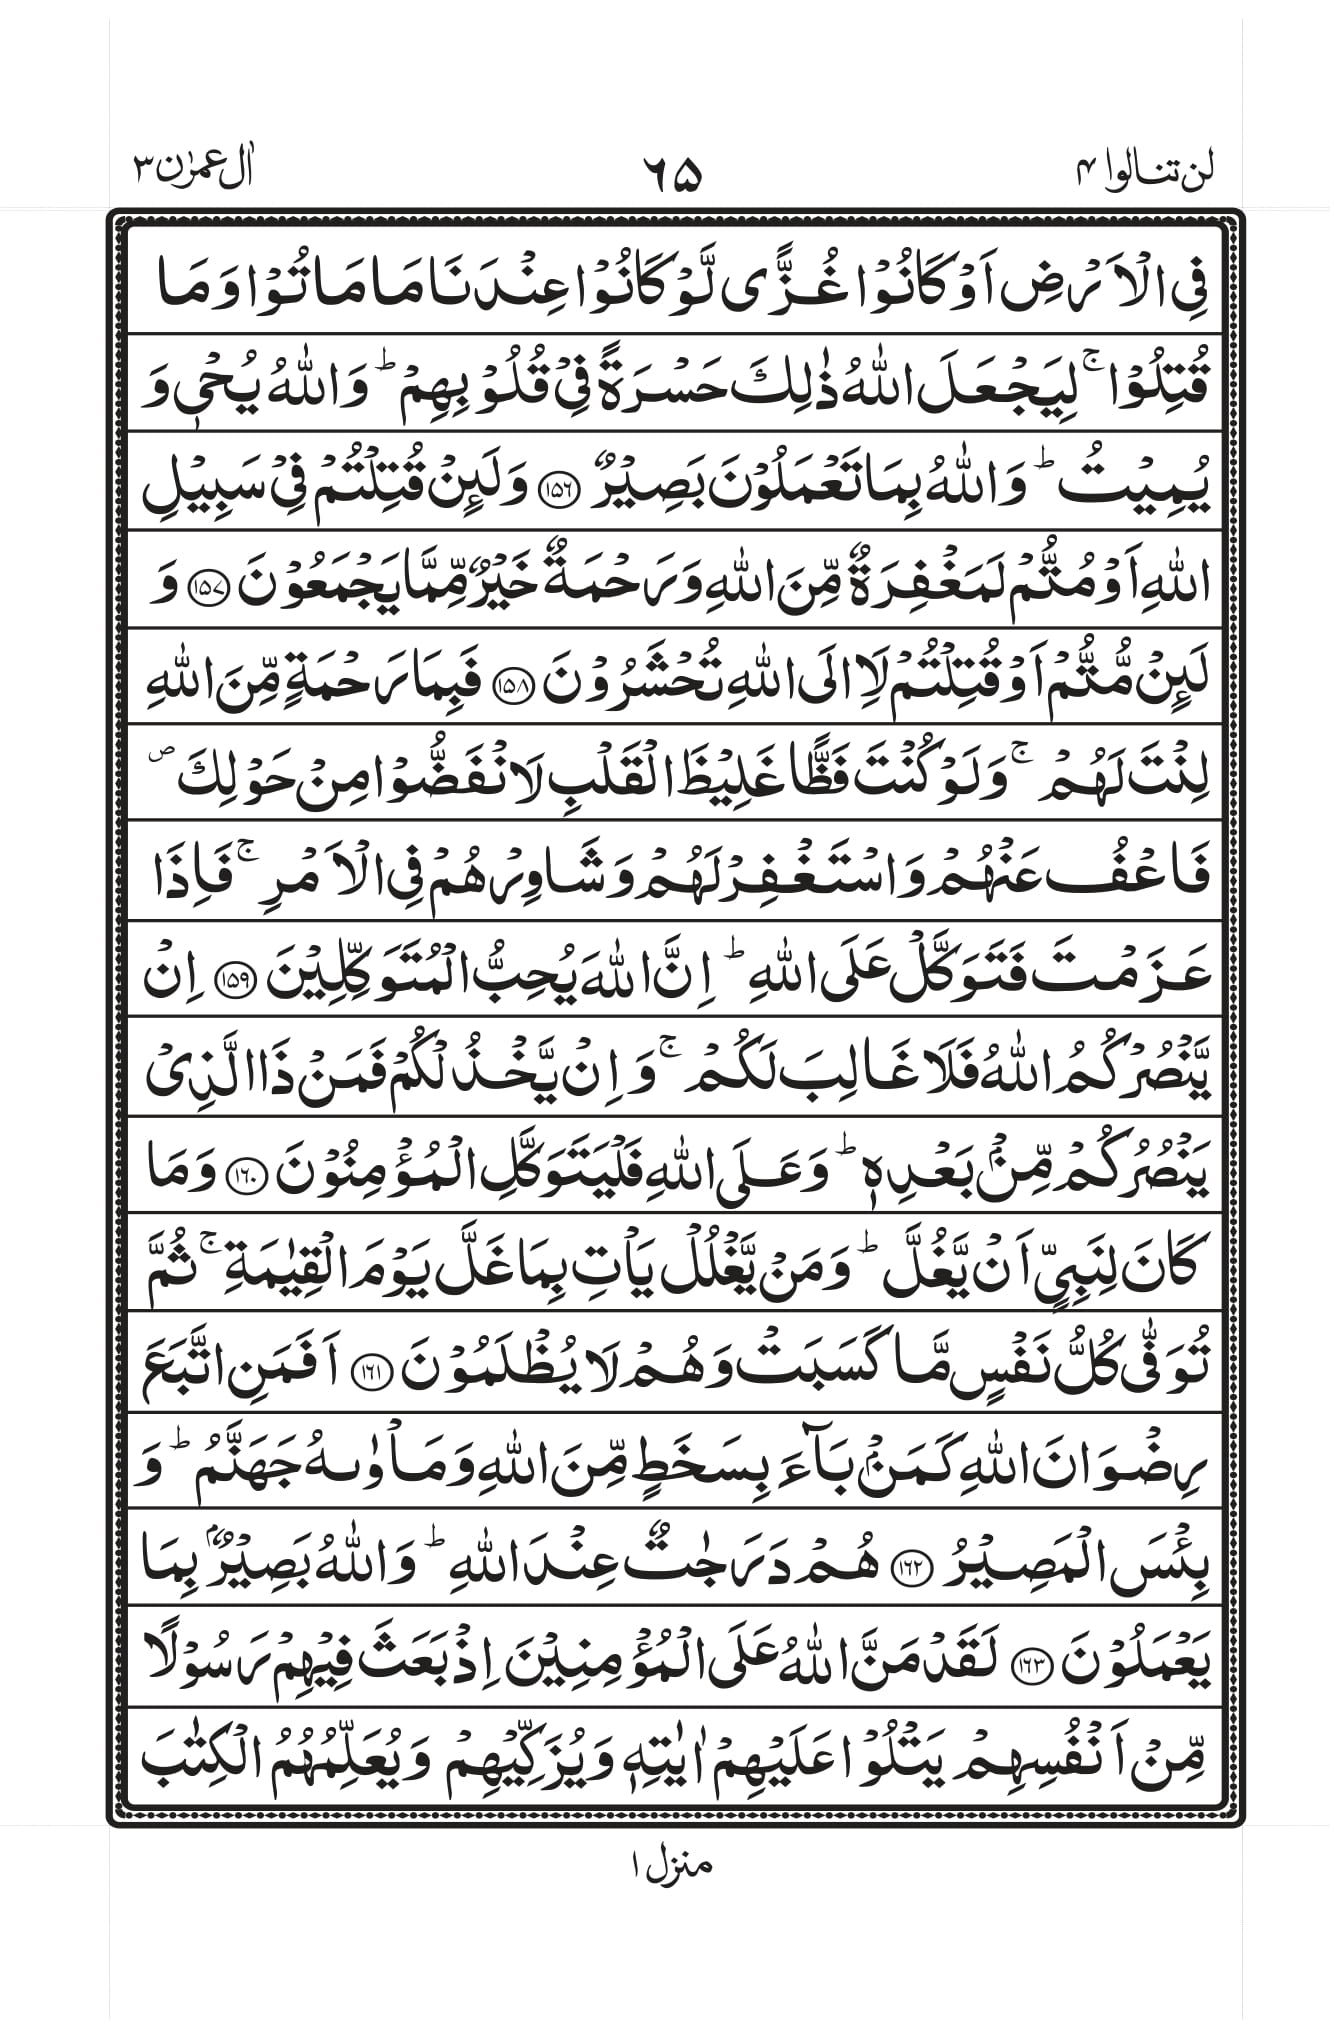 لن تنالوا ۴
۶۵
اٰل عمرٰن ۳
فِی الۡاَرۡضِ اَوۡ كَانُوۡا غُزًّی لَّوۡ كَانُوۡا عِنۡدَنَا مَا مَاتُوۡا وَمَا
قُتِلُوۡا ۚ لِیَجۡعَلَ اللّٰهُ ذٰلِكَ حَسۡرَةً فِیۡ قُلُوۡبِهِمۡ ؕ وَاللّٰهُ یُحۡیٖ وَ
یُمِیۡتُ ؕ وَاللّٰهُ بِمَا تَعۡمَلُوۡنَ بَصِیۡرٌ ﴿۱۵۶﴾ وَلَىِٕنۡ قُتِلۡتُمۡ فِیۡ سَبِیۡلِ
اللّٰهِ اَوۡ مُتُّمۡ لَمَغۡفِرَةٌ مِّنَ اللّٰهِ وَرَحۡمَةٌ خَیۡرٌ مِّمَّا یَجۡمَعُوۡنَ ﴿۱۵۷﴾ وَ
لَىِٕنۡ مُّتُّمۡ اَوۡ قُتِلۡتُمۡ لَاِالَی اللّٰهِ تُحۡشَرُوۡنَ ﴿۱۵۸﴾ فَبِمَا رَحۡمَةٍ مِّنَ اللّٰهِ
لِنۡتَ لَهُمۡ ۚ وَلَوۡ كُنۡتَ فَظًّا غَلِیۡظَ الۡقَلۡبِ لَانۡفَضُّوۡا مِنۡ حَوۡلِكَ ۪
فَاعۡفُ عَنۡهُمۡ وَاسۡتَغۡفِرۡ لَهُمۡ وَشَاوِرۡهُمۡ فِی الۡاَمۡرِ ۚ فَاِذَا
عَزَمۡتَ فَتَوَكَّلۡ عَلَی اللّٰهِ ؕ اِنَّ اللّٰهَ یُحِبُّ الۡمُتَوَكِّلِیۡنَ ﴿۱۵۹﴾ اِنۡ
یَّنۡصُرۡكُمُ اللّٰهُ فَلَا غَالِبَ لَكُمۡ ۚ وَاِنۡ یَّخۡذُلۡكُمۡ فَمَنۡ ذَا الَّذِیۡ
یَنۡصُرُكُمۡ مِّنۡۢ بَعۡدِهٖ ؕ وَعَلَی اللّٰهِ فَلۡیَتَوَكَّلِ الۡمُؤۡمِنُوۡنَ ﴿۱۶۰﴾ وَمَا
كَانَ لِنَبِیٍّ اَنۡ یَّغُلَّ ؕ وَمَنۡ یَّغۡلُلۡ یَاۡتِ بِمَا غَلَّ یَوۡمَ الۡقِیٰمَةِ ۚ ثُمَّ
تُوَفّٰی كُلُّ نَفۡسٍ مَّا كَسَبَتۡ وَهُمۡ لَا یُظۡلَمُوۡنَ ﴿۱۶۱﴾ اَفَمَنِ اتَّبَعَ
رِضۡوَانَ اللّٰهِ كَمَنۡۢ بَآءَ بِسَخَطٍ مِّنَ اللّٰهِ وَمَاۡوٰىهُ جَهَنَّمُ ؕ وَ
بِئۡسَ الۡمَصِیۡرُ ﴿۱۶۲﴾ هُمۡ دَرَجٰتٌ عِنۡدَ اللّٰهِ ؕ وَاللّٰهُ بَصِیۡرٌۢ بِمَا
یَعۡمَلُوۡنَ ﴿۱۶۳﴾ لَقَدۡ مَنَّ اللّٰهُ عَلَی الۡمُؤۡمِنِیۡنَ اِذۡ بَعَثَ فِیۡهِمۡ رَسُوۡلًا
مِّنۡ اَنۡفُسِهِمۡ یَتۡلُوۡا عَلَیۡهِمۡ اٰیٰتِهٖ وَیُزَكِّیۡهِمۡ وَیُعَلِّمُهُمُ الۡكِتٰبَ
منزل ۱